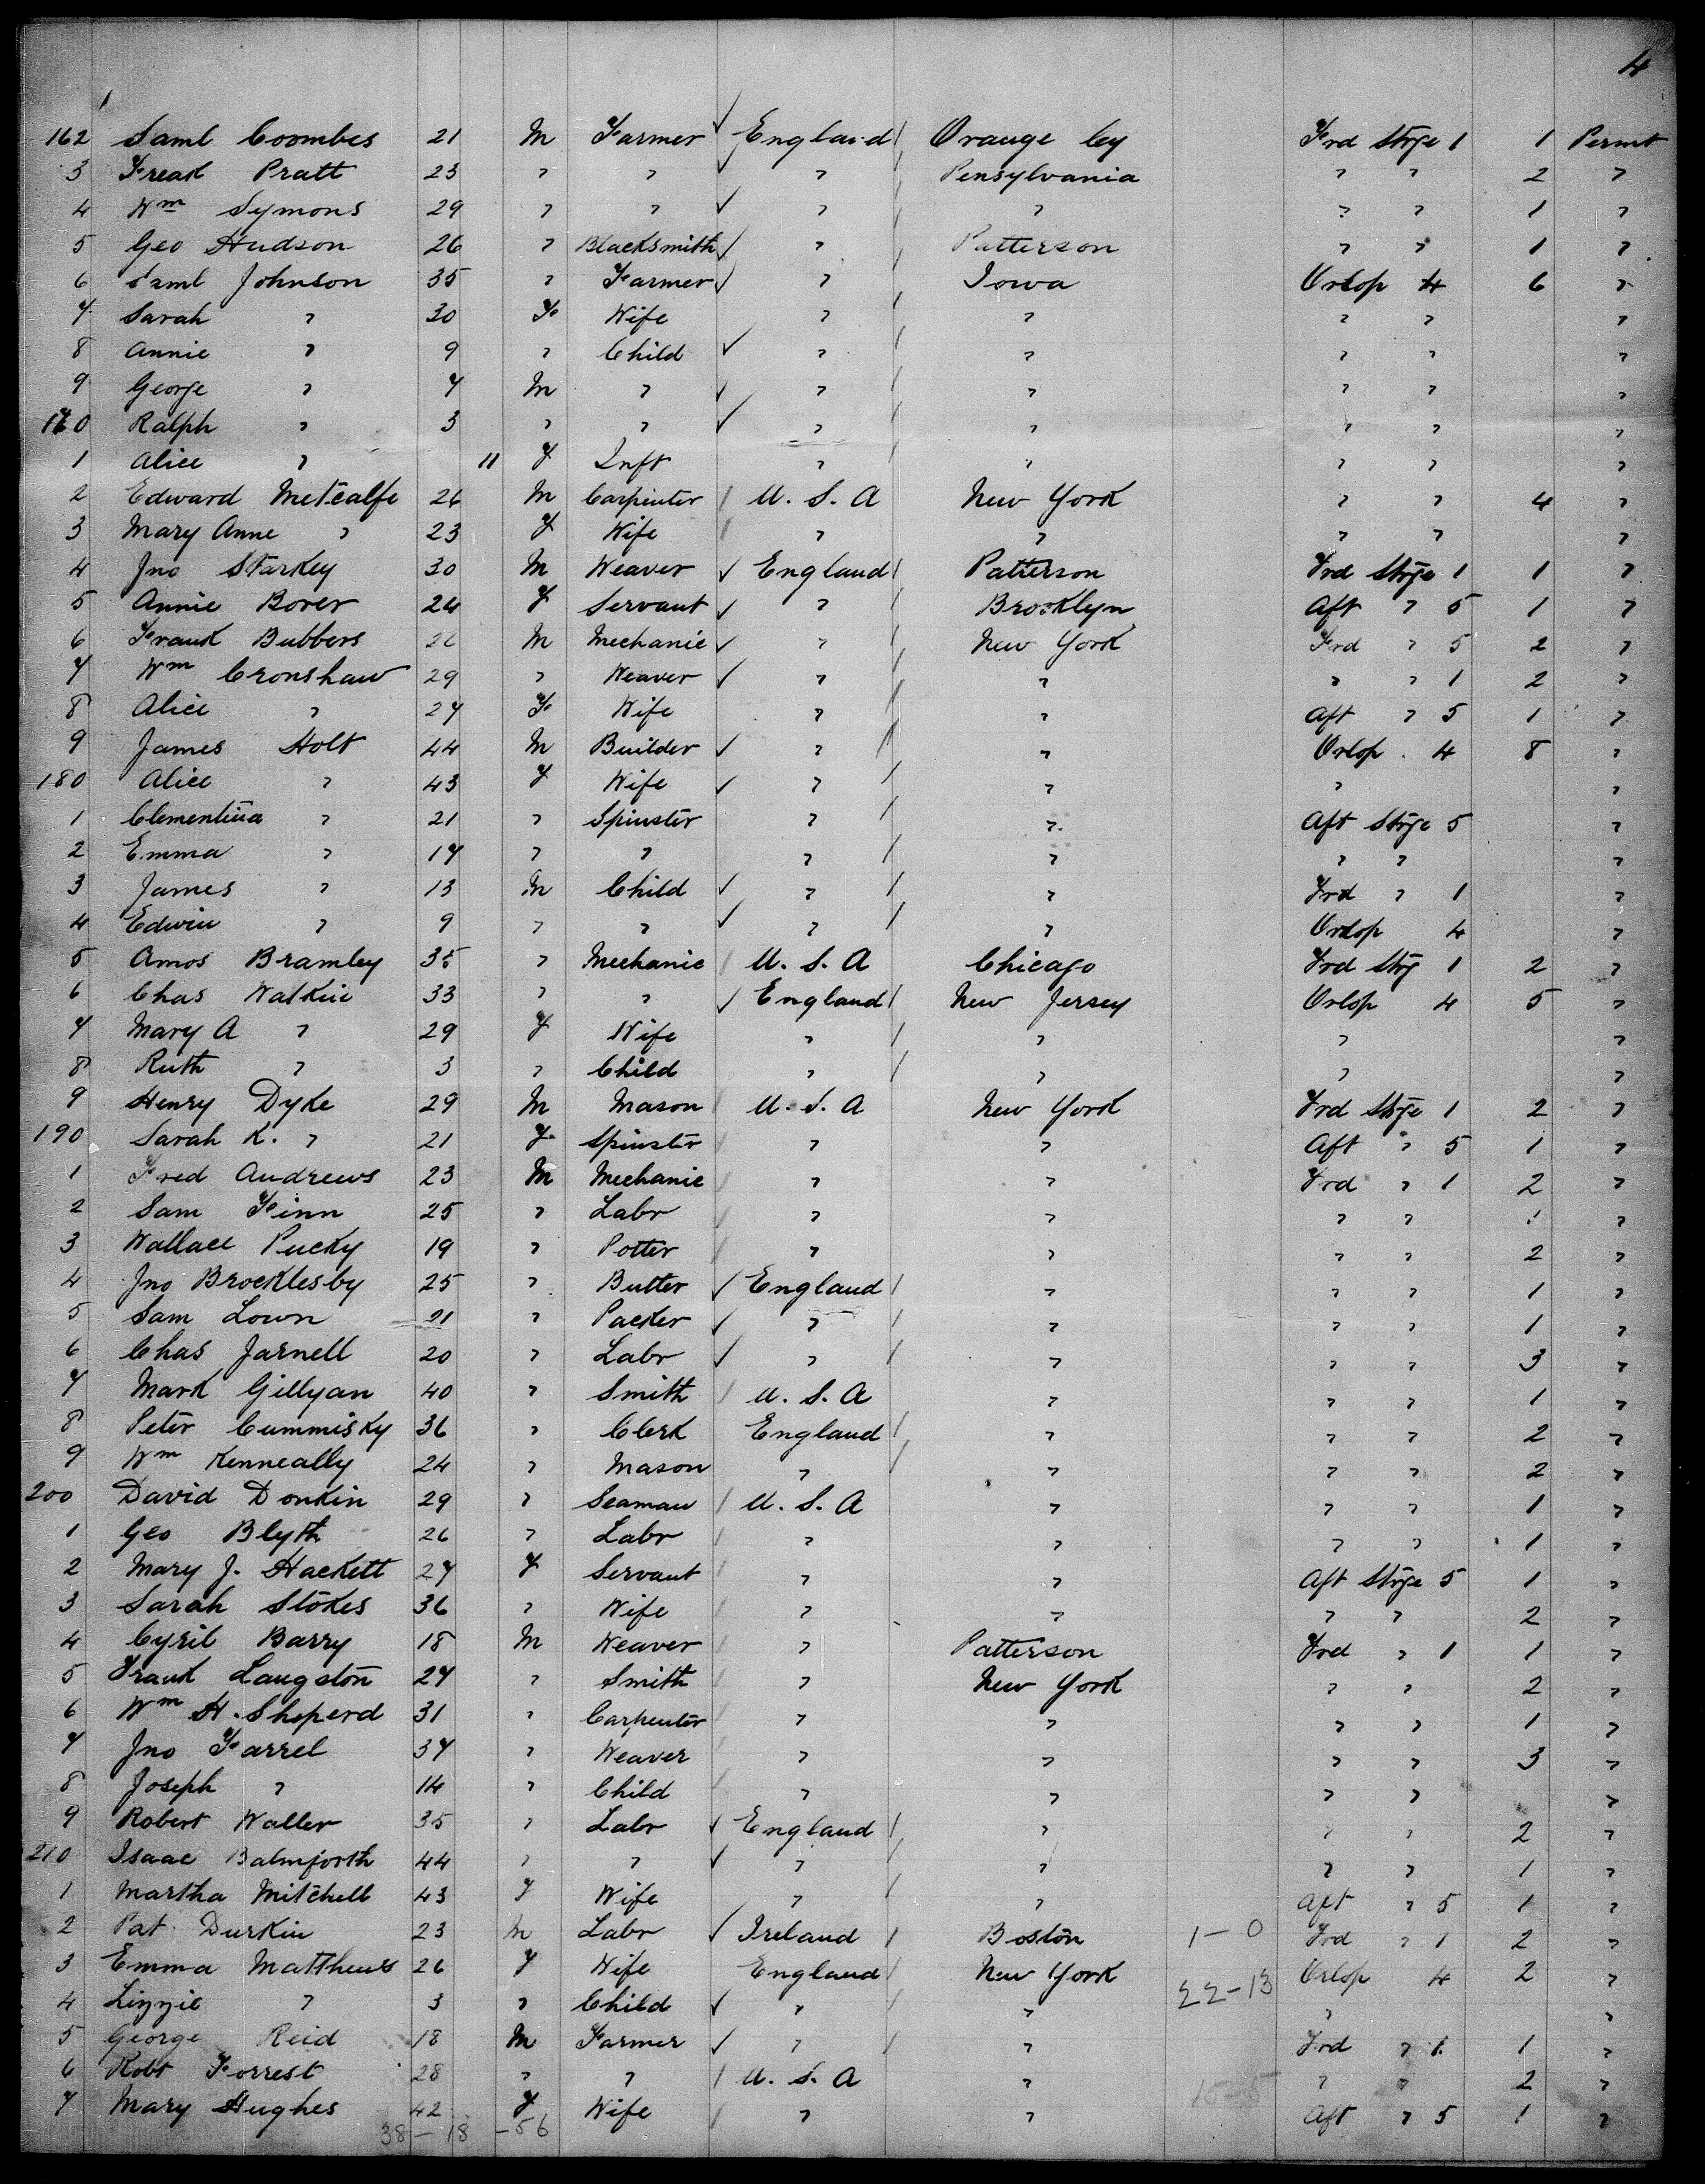 4
162 Saml Coombes 21 M Farmer England Orange Cy Frd Strge 1 1 Permt
3 Freak Pratt 23 " " " Pensylvania " " 2 "
4 Wm Symons 29 " " " " " " 1 "
5 Geo Hudson 26 " Blacksmith " Patterson " " 1 "
6 Saml Johnson 35 " Farmer " Iowa Orlop 4 6 "
7 Sarah " 30 F Wife " " " " "
8 Annie " 9 " Child " " " " "
9 George " 7 M " " " " " "
170 Ralph " 3 " " " " " " "
1 Alice " 11 F Inft " " " " "
2 Edward Metcalfe 26 M Carpinter U. S. A New York " " 4 "
3 Mary Anne " 23 F Wife " " " " "
4 Jno Starkey 30 M Weaver England Patterson Frd Strge 1 1 "
5 Annie Borer 24 F Servant " Brooklyn Aft " 5 1 "
6 Frank Bubbers 26 M Mechanic " New York Frd " 5 2 "
7 Wm Cronshaw 29 " Weaver " " " " 1 2 "
8 Alice " 27 F Wife " " Aft " 5 1 "
9 James Holt 44 M Builder " " Orlop 4 8 "
180 Alice " 43 F Wife " " " "
1 Clementina " 21 " Spinster " " Aft Strge 5 "
2 Emma " 17 " " " " " " "
3 James " 13 M Child " " Frd " 1 "
4 Edwin " 9 " " " " Orlop 4 "
5 Amos Bramley 35 " Mechanic U. S. A Chicago Frd Strg 1 2 "
6 Chas Watkin 33 " " England New Jersey Orlop 4 5 "
7 Mary A " 29 F Wife " " " "
8 Ruth " 3 " Child " " " "
9 Henry Dyke 29 M Mason U. S. A New York Frd Strge 1 2 "
190 Sarah K. " 21 F Spinster " " Aft " 5 1 "
1 Fred Andrews 23 M Mechanic " " Frd " 1 2 "
2 Sam Finn 25 " Labr " " " " 1 "
3 Wallace Pucky 19 " Potter " " " " 2 "
4 Jno Brocklesby 25 " Butter England " " " 1 "
5 Sam Lown 21 " Packer " " " " 1 "
6 Chas Jarnell 20 " Labr " " " " 3 "
7 Mark Gillyan 40 " Smith U. S. A " " " 1 "
8 Peter Cummisky 36 " Clerk England " " " 2 "
9 Wm Kenneally 24 " Mason " " " " 2 "
200 David Donkin 29 " Seaman U. S. A " " " 1 "
1 Geo Blyth 26 " Labr " " " " 1 "
2 Mary J. Hackett 27 F Servant " " Aft Strge 5 1 "
3 Sarah Stokes 36 " Wife " " " " 2 "
4 Cyril Barry 18 M Weaver " Patterson Frd " 1 1 "
5 Frank Langston 27 " Smith " New York " " 2 "
6 Wm H. Sheperd 31 " Carpenter " " " " 1 "
7 Jno Farrel 37 " Weaver " " " " 3 "
8 Joseph " 14 " Child " " " " "
9 Robert Waller 35 " Labr England " " " 2 "
210 Isaac Balmforth 44 " " " " " " 1 "
1 Martha Mitchell 43 F Wife " " Aft " 5 1 "
2 Pat Durkin 23 M Labr Ireland Boston 1-0 Frd " 1 2 "
3 Emma Matthews 26 F Wife England New York 22-13 Orlop 4 2 "
4 Lizzie " 3 " Child " " " "
5 George Reid 18 M Farmer " " Frd " 1 1 "
6 Robt Forrest 28 " " U. S. A " 15-5 " " 2 "
7 Mary Hughes 42 F Wife " " Aft " 5 1 "
38-18-56